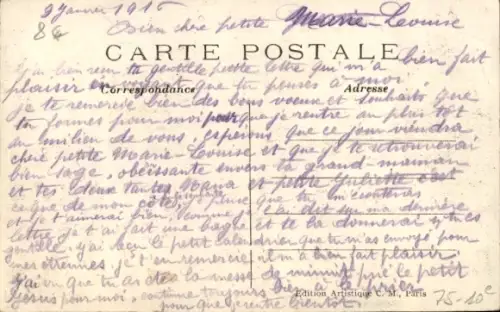 9 Janvier 1916
84
Bien chère petite Marie-Louise
CARTE POSTALE
J'ai bien reçu ta gentille petite lettre qui m'a bien fait
plaisir en voyant que tu penses à moi,
Correspondance Adresse
je te remercie bien des bons voeux et souhaits que
tu formes pour moi pour que je rentre au plus tôt
au milien de vous, esperons que ce jour viendra
chère petite Marie-Louise et que je te retrouverai
bien sage, obeissante envers ta grand-maman
et tes deux tantes Nana et petite Juliette c'est
ce que de mon côté je pense que tu m'écouteras
et je t'aimerai bien, comme je t'ai dit sur ma dernière
lettre, je t'ai fait une bague et te la donnerai si tu es
gentille, j'ai reçu le petit calendrier que tu m'as envoyé pour
mes étrennes, je t'en remercie il m'a bien fait plaisir.
J'ai vu que tu as été à la messe de minuit prié le petit
Jésus pour moi, continue toujours bien à le prier
pour que je rentre bientôt.
Édition Artistique C. M., Paris
75-10c